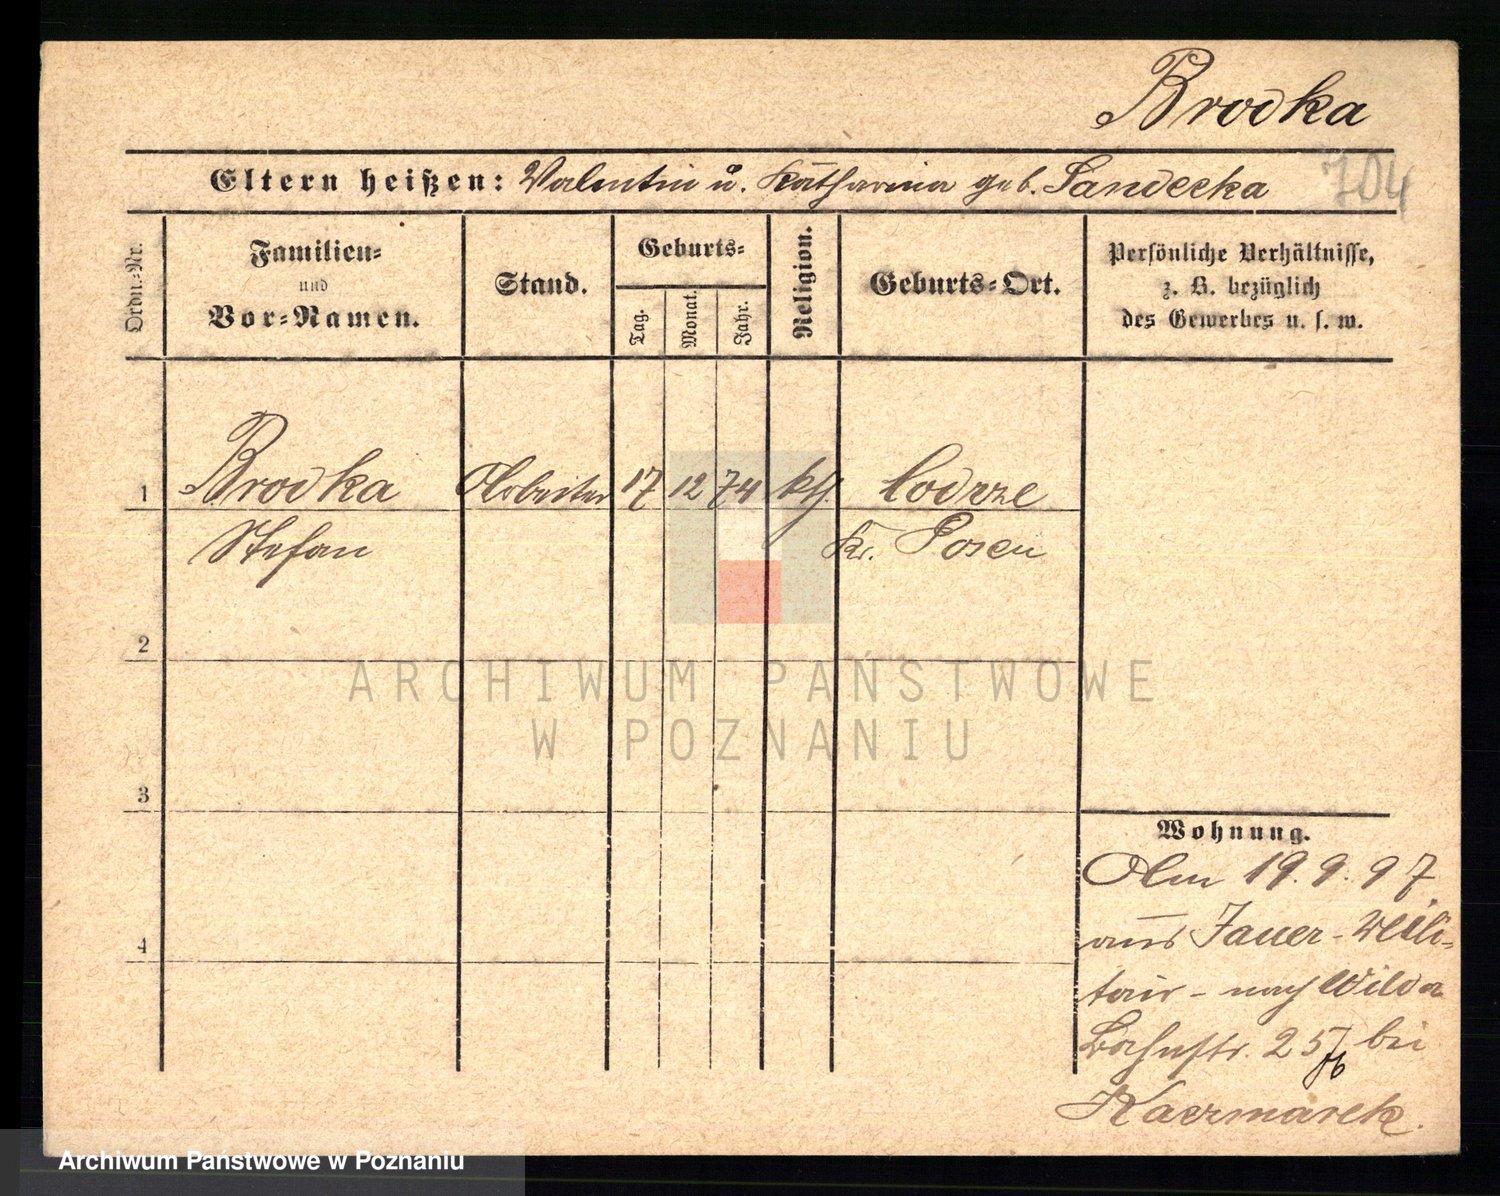 Brodka
Eltern heißen: Valentin u. Katharina geb. Sandecka
704
Ordn.=Nr.
Familien=
und
Vor=Namen.
Stand.
Geburts=
Tag.
Monat.
Jahr.
Religion.
Geburts=Ort.
Persönliche Verhältnisse,
z. B. bezüglich
des Gewerbes u. s. w.
1 Brodka Arbeiter 17 12 74 kth.
Stefan Kr. Posen
2
3
4
Wohnung.
Am 19. 9. 97
aus Jauer - Mili-
tair - nach Wilda
Bahnstr. 25 bei
Kaczmarek.
ARCHIWUM PAŃSTWOWE
W POZNANIU
Archiwum Państwowe w Poznaniu